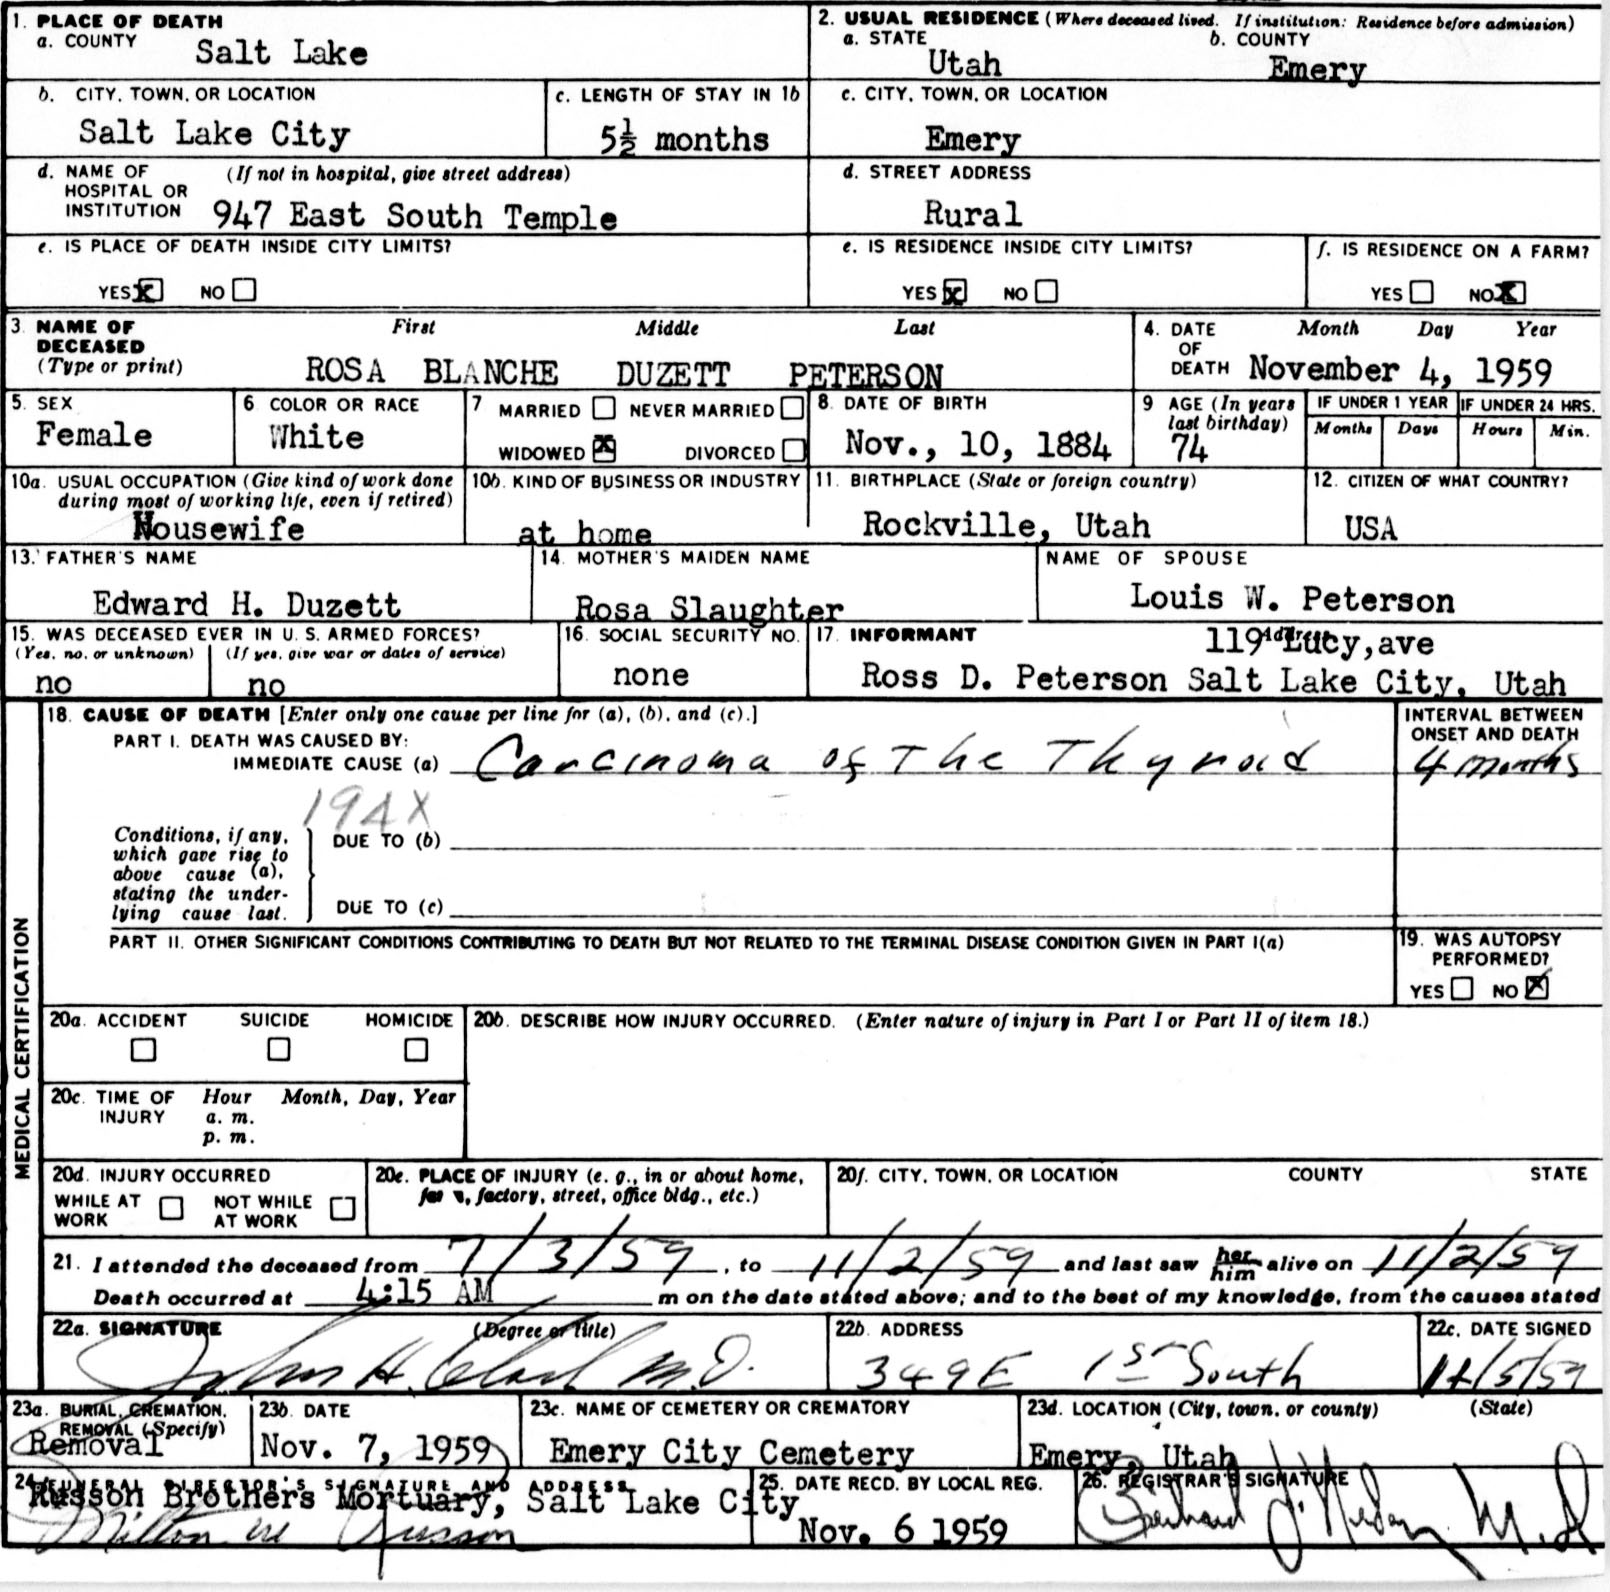 1. PLACE OF DEATH
a. COUNTY Salt Lake
2. USUAL RESIDENCE (Where deceased lived. If institution: Residence before admission)
a. STATE Utah b. COUNTY Emery
b. CITY, TOWN, OR LOCATION Salt Lake City
c. LENGTH OF STAY IN 1b 5½ months
c. CITY, TOWN, OR LOCATION Emery
d. NAME OF HOSPITAL OR INSTITUTION (If not in hospital, give street address) 947 East South Temple
d. STREET ADDRESS Rural
e. IS PLACE OF DEATH INSIDE CITY LIMITS?
YES X NO
e. IS RESIDENCE INSIDE CITY LIMITS?
YES X NO
f. IS RESIDENCE ON A FARM?
YES NO X
3. NAME OF DECEASED (Type or print) First Middle Last
ROSA BLANCHE DUZETT PETERSON
4. DATE OF DEATH Month Day Year
November 4, 1959
5. SEX Female
6 COLOR OR RACE White
7 MARRIED NEVER MARRIED
WIDOWED X DIVORCED
8. DATE OF BIRTH Nov., 10, 1884
9 AGE (In years last birthday) 74
IF UNDER 1 YEAR Months Days
IF UNDER 24 HRS. Hours Min.
10a. USUAL OCCUPATION (Give kind of work done during most of working life, even if retired) Housewife
10b. KIND OF BUSINESS OR INDUSTRY at home
11. BIRTHPLACE (State or foreign country) Rockville, Utah
12. CITIZEN OF WHAT COUNTRY? USA
13. FATHER'S NAME Edward H. Duzett
14. MOTHER'S MAIDEN NAME Rosa Slaughter
NAME OF SPOUSE Louis W. Peterson
15. WAS DECEASED EVER IN U. S. ARMED FORCES?
(Yes, no, or unknown) (If yes, give war or dates of service)
no no
16. SOCIAL SECURITY NO. none
17. INFORMANT 119 Lucy, ave
Ross D. Peterson Salt Lake City, Utah
MEDICAL CERTIFICATION
18. CAUSE OF DEATH [Enter only one cause per line for (a), (b), and (c).]
INTERVAL BETWEEN ONSET AND DEATH
PART I. DEATH WAS CAUSED BY:
IMMEDIATE CAUSE (a) Carcinoma of The Thyroid 4 months
194X
Conditions, if any, which gave rise to above cause (a), stating the underlying cause last.
DUE TO (b)
DUE TO (c)
PART II. OTHER SIGNIFICANT CONDITIONS CONTRIBUTING TO DEATH BUT NOT RELATED TO THE TERMINAL DISEASE CONDITION GIVEN IN PART I(a)
19. WAS AUTOPSY PERFORMED?
YES NO X
20a. ACCIDENT SUICIDE HOMICIDE
20b. DESCRIBE HOW INJURY OCCURRED. (Enter nature of injury in Part I or Part II of item 18.)
20c. TIME OF INJURY Hour Month, Day, Year
a. m.
p. m.
20d. INJURY OCCURRED
WHILE AT WORK NOT WHILE AT WORK
20e. PLACE OF INJURY (e. g., in or about home, factory, street, office bldg., etc.)
20f. CITY, TOWN, OR LOCATION COUNTY STATE
21. I attended the deceased from 7/3/59, to 11/2/59 and last saw her him alive on 11/2/59
Death occurred at 4:15 AM m on the date stated above; and to the best of my knowledge, from the causes stated
22a. SIGNATURE (Degree or title)
John H. Clark M.D.
22b. ADDRESS 349 E 1st South
22c. DATE SIGNED 11/5/59
23a. BURIAL, CREMATION, REMOVAL (Specify) Removal
23b. DATE Nov. 7, 1959
23c. NAME OF CEMETERY OR CREMATORY Emery City Cemetery
23d. LOCATION (City, town, or county) (State)
Emery, Utah
24. FUNERAL DIRECTOR'S SIGNATURE AND ADDRESS
Russon Brothers Mortuary, Salt Lake City
Milton W Russon
25. DATE RECD. BY LOCAL REG. Nov. 6 1959
26. REGISTRAR'S SIGNATURE
M.D.